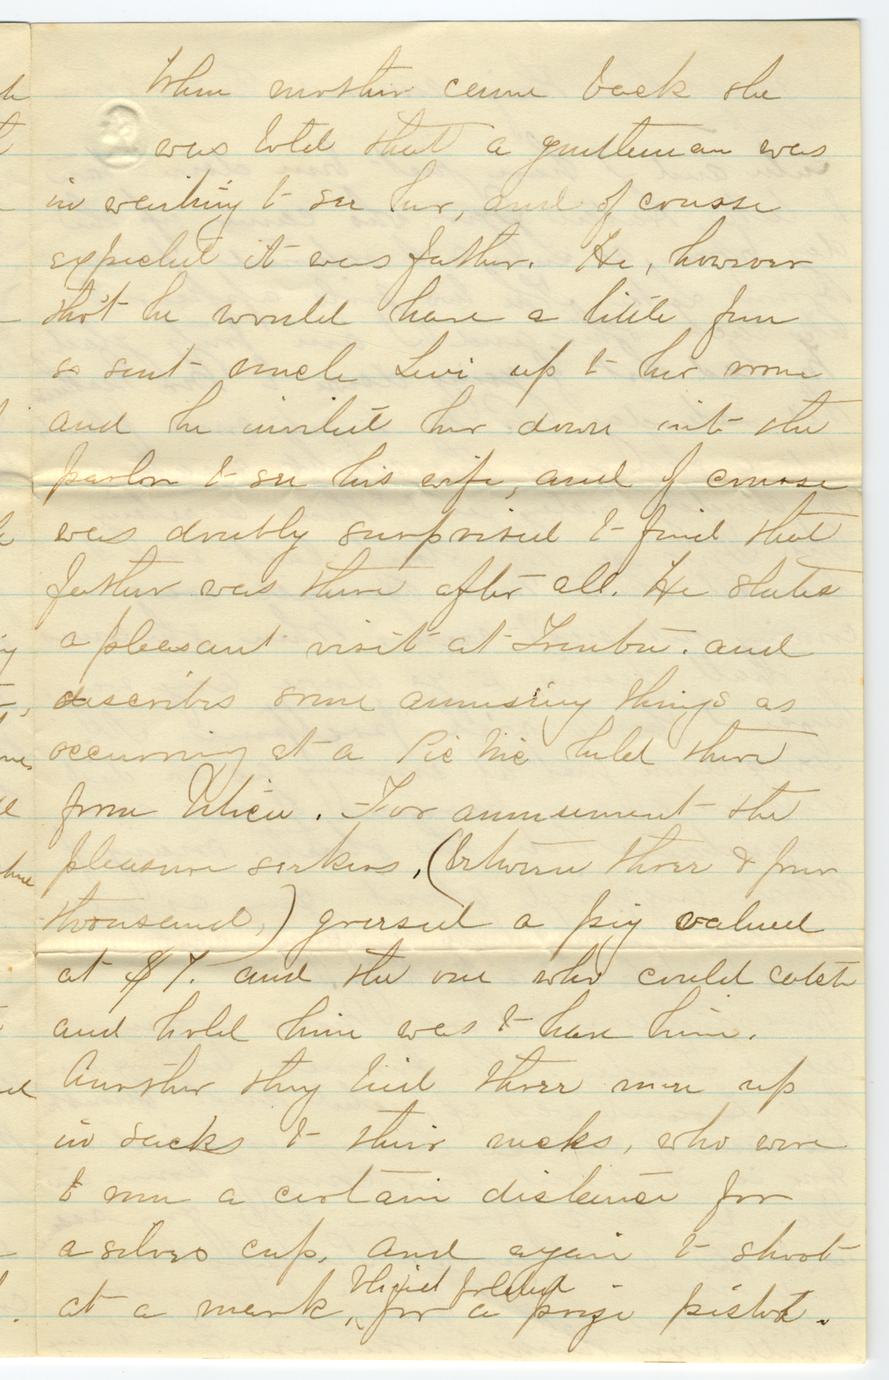 When mother came back she
was told that a gentleman was
in waiting to see her, and of course
expected it was father. He, however
tho't he would have a little fun
so sent uncle Levi up to her room
and he invited her down into the
parlor to see his wife, and of course
was doubly surprised to find that
father was there after all. He states
a pleasant visit at Trenton. and
describes some amusing things as
occurring at a Pic Nic held there
from Utica. For amusement the
pleasure seekers, (between three & four
thousand,) greased a pig valued
at $7. and the one who could catch
and hold him was to have him.
Another they tied three men up
in sacks to their necks, who were
to run a certain distance for
a silver cup. and again to shoot
blind folded
at a mark, for a prize pistol.